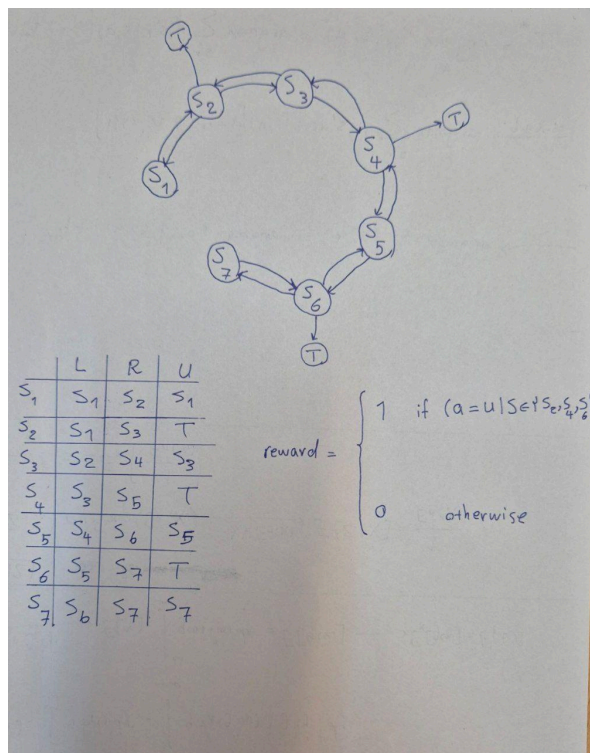 T
S2
S3
S4
T
S1
S5
S7
S6
T
L R U
S1 S1 S2 S1
S2 S1 S3 T
S3 S2 S4 S3
S4 S3 S5 T
S5 S4 S6 S5
S6 S5 S7 T
S7 S6 S7 S7
reward =
1 if (a=u|S∈{S2,S4,S6
0 otherwise